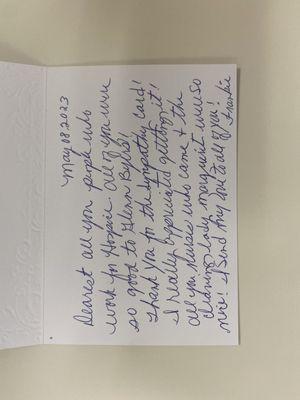 May 08 2023
Dearest all you people who
work for Hospice all of you were
so good to Glenn
Thank You for the sympathy card!
I really appreciated getting it!
all you nurses who came & the
cleaning lady margueit were so
nice! I Send my love to all of you!